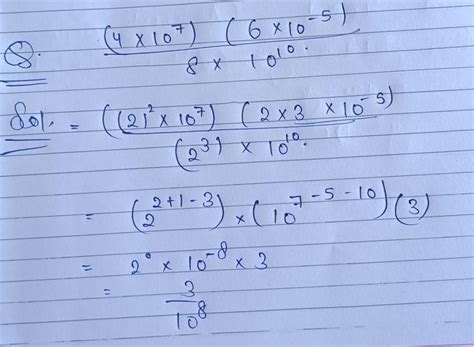 Q. (4 × 10⁷) (6 × 10⁻⁵)
8 × 10¹⁰.
Sol. = ((2)² × 10⁷) (2 × 3 × 10⁻⁵)
(2³) × 10¹⁰.
= (2²⁺¹⁻³) × (10⁷⁻⁵⁻¹⁰) (3)
= 2⁰ × 10⁻⁸ × 3
= 3
10⁸